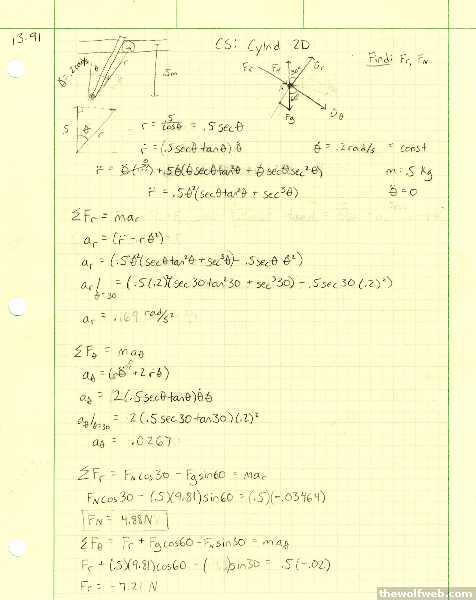 13.91
CS: Cylnd 2D
Find: Fr, FN
θ̇ = .2 rad/s
θ
r
.5m
Fr
FN
30°
Ur
Fg
Uθ
5
θ
r
r = .5/cosθ = .5 secθ
ṙ = (.5secθtanθ) θ̇
θ̇ = .2 rad/s = const
m = .5 kg
θ̈ = 0
r̈ = .5θ̇²(secθtan²θ + sec³θ)
ΣFr = mar
ar = (r̈ - rθ̇²)
ar = (.5θ̇²(secθtan²θ + sec³θ) - .5secθ θ̇²)
ar|θ=30 = (.5(.2)²(sec30tan²30 + sec³30) - .5sec30(.2)²)
ar = .169 rad/s²
ΣFθ = maθ
aθ = (rθ̈ + 2ṙθ̇)
aθ = 2(.5secθtanθ)θ̇θ̇
aθ|θ=30 = 2(.5sec30tan30)(.2)²
aθ = .0267
ΣFr = FNcos30 - Fgsin60 = mar
FNcos30 - (.5)(9.81)sin60 = (.5)(-.03464)
FN = 4.88N
ΣFθ = Fr + Fgcos60 - FNsin30 = maθ
Fr + (.5)(9.81)cos60 - ( )sin30 = .5(-.02)
Fr = -7.21 N
thewolfweb.com